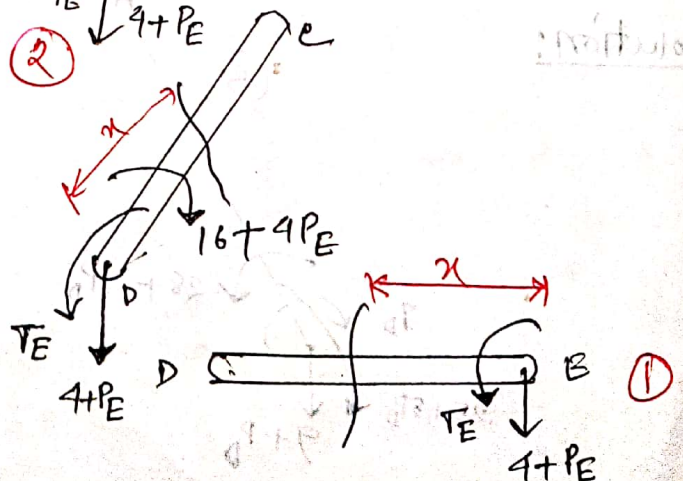 4+PE
2
C
x
16+4PE
D
TE
4+PE
x
D
B
1
TE
4+PE